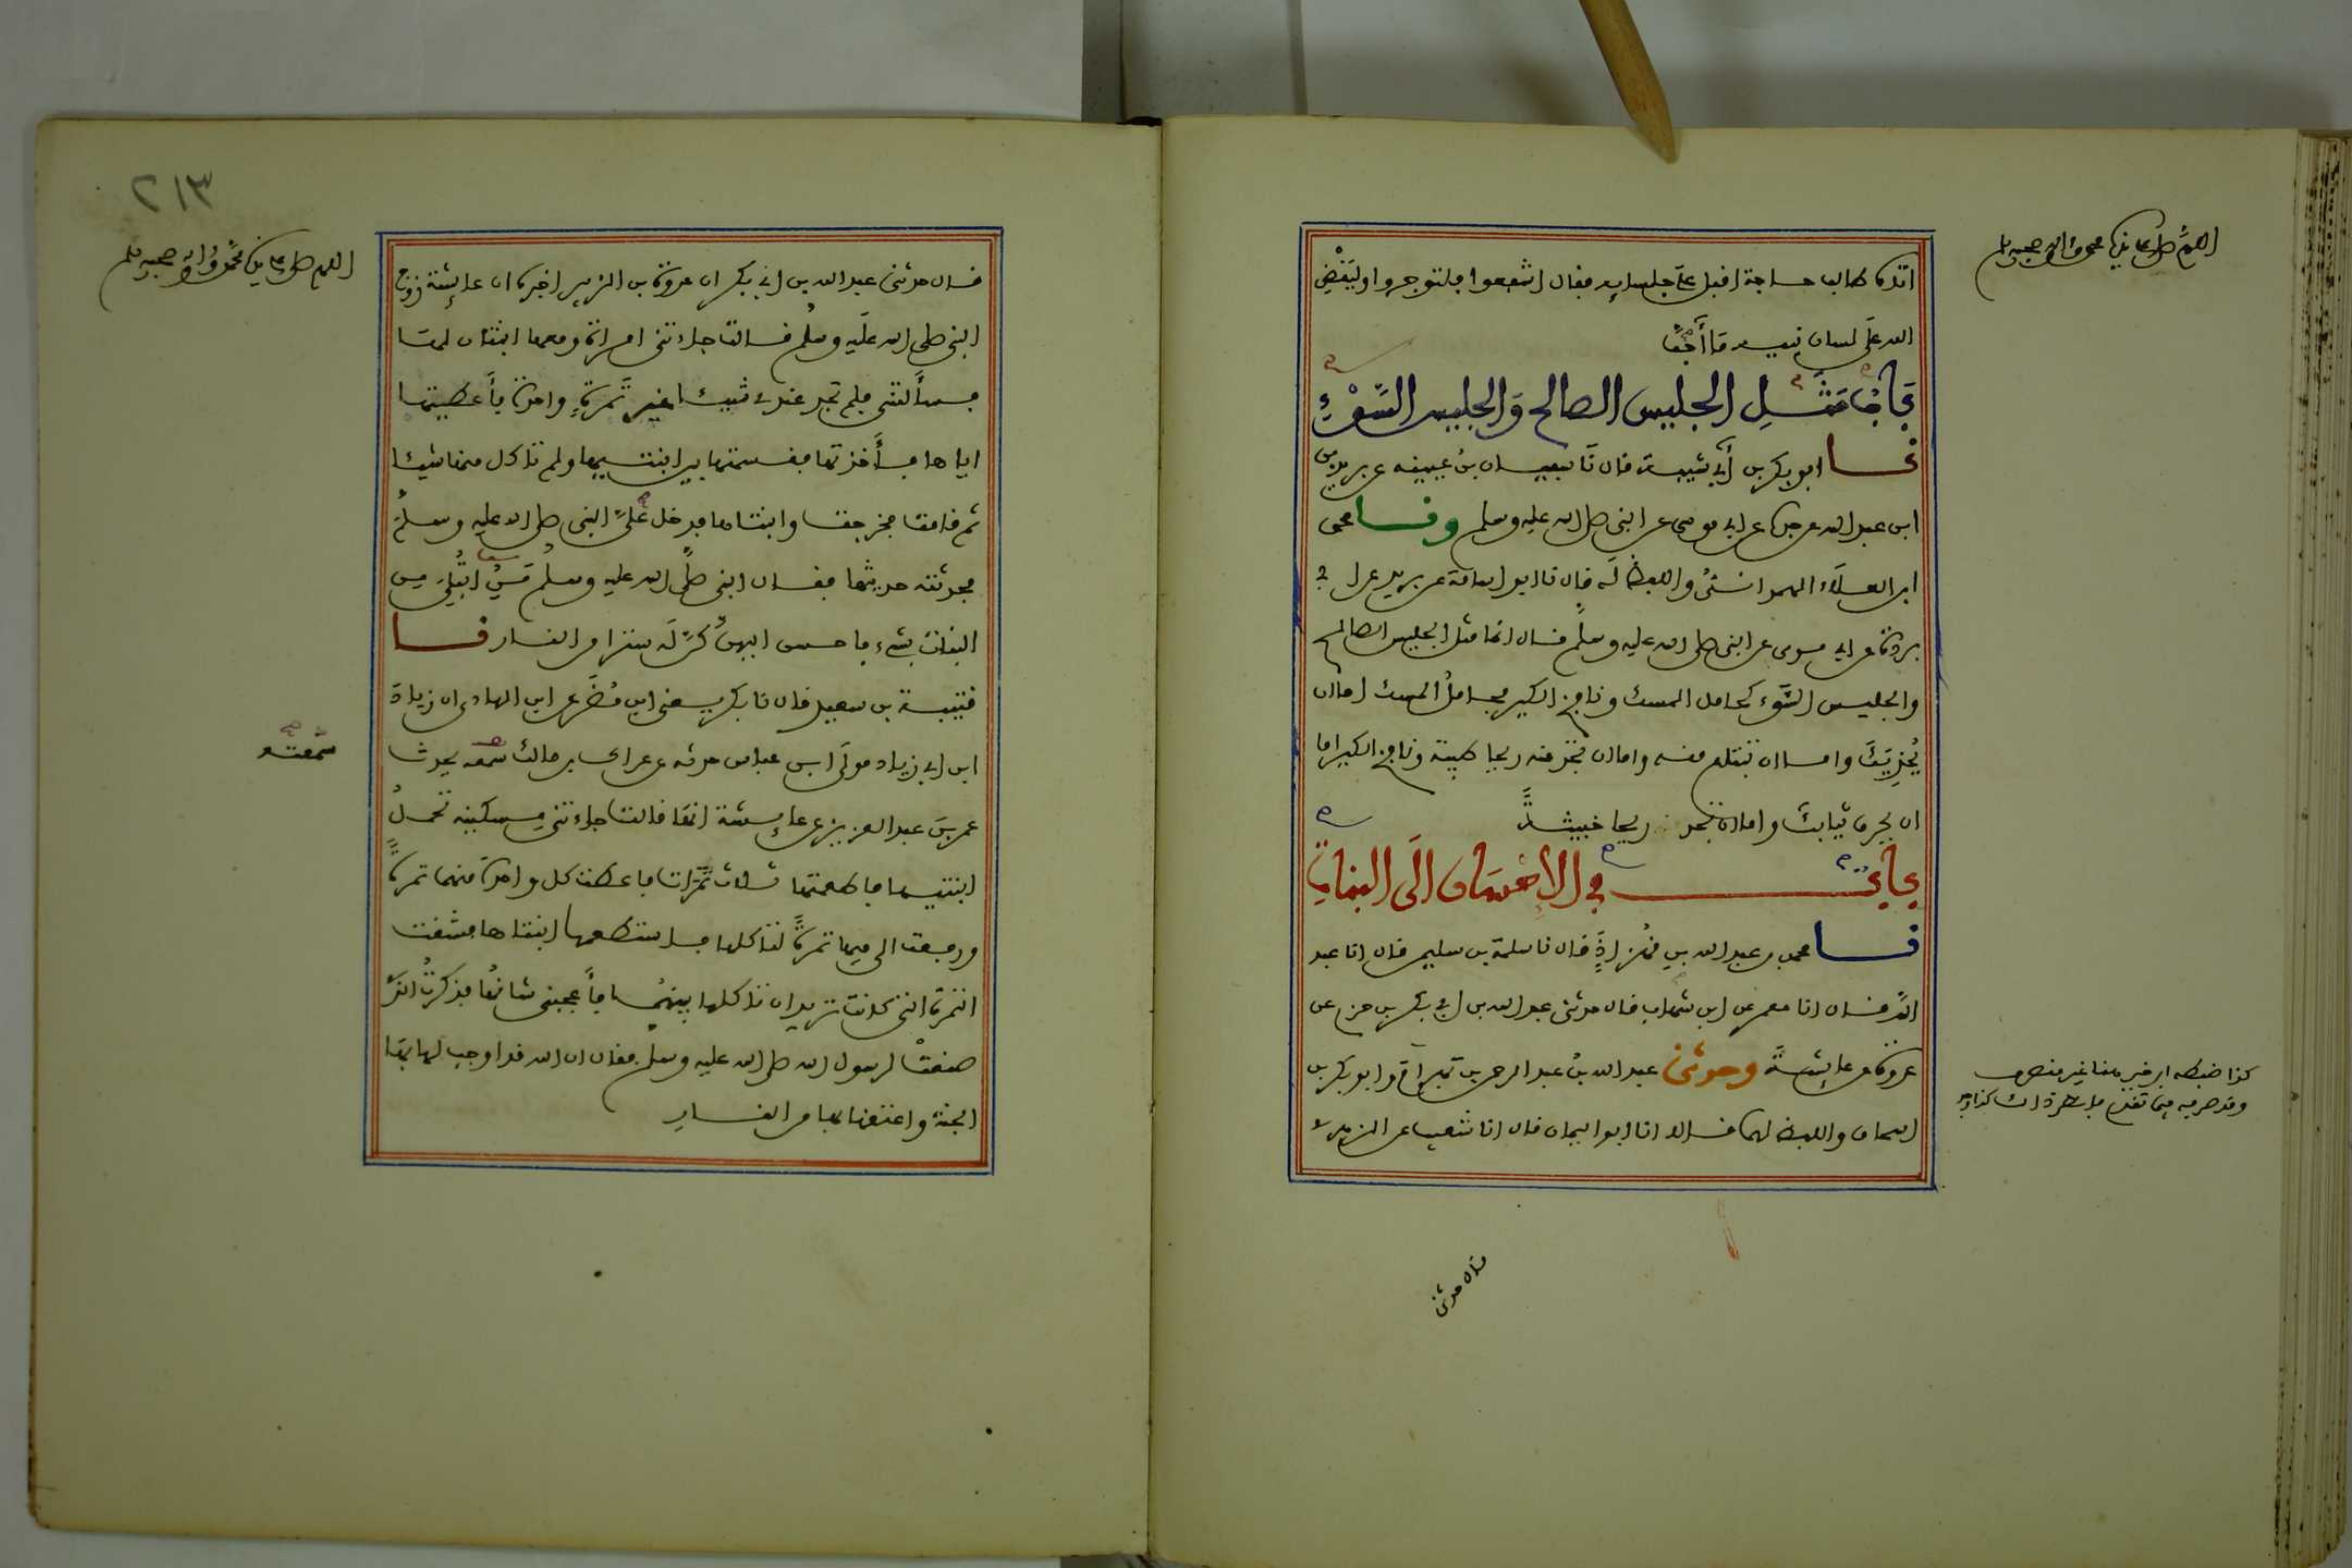 اللهم صل على سيدنا محمد واله وصحبه وسلم
اتاه طالب حاجة اقبل على جلسايه فقال اشفعوا فلتوجروا وليقض
الله على لسان نبيه ما أحب
باب مثل الجليس الصالح والجليس السوء
نا ابو بكر بن أبي شيبة قال نا سفيان بن عيينة عن بريد بن
ابن عبد الله عن جده عن ابي موسى عن النبي صلى الله عليه وسلم ونا محمد
ابن العلاء الهمداني واللفظ له قال نا ابو اسامة عن بريد عن ابي
بردة عن ابي موسى عن النبي صلى الله عليه وسلم قال انما مثل الجليس الصالح
والجليس السوء كحامل المسك ونافخ الكير فحامل المسك اما ان
يحذيك واما ان تبتاع منه واما ان تجد منه ريحا طيبة ونافخ الكير اما
ان يحرق ثيابك واما ان تجد ريحا خبيثة
باب في الاحسان الى البنات
نا محمد بن عبد الله بن قهزاذ قال نا سلمة بن سليمن قال انا عبد
الله قال انا معمر عن ابن شهاب قال حدثني عبد الله بن ابي بكر بن حزم عن
عروة عن عايشة وحدثني عبد الله بن عبد الرحمن بن بهرام وابو بكر بن
اسحاق واللفظ لهما قالا انا ابو اليمان قال انا شعيب عن الزهري
كذا ضبطه
قال حدثني
٢١٣
اللهم صل على سيدنا محمد واله وصحبه وسلم
قال حدثني عبد الله بن ابي بكر ان عروة بن الزبير اخبره ان عايشة زوج
النبي صلى الله عليه وسلم قالت جاءتني امراة ومعها ابنتان لها
فسألتني فلم تجد عندي شيئا غير تمرة واحدة فأعطيتها
اياها فأخذتها فقسمتها بين ابنتيها ولم تاكل منها شيئا
ثم قامت فخرجت وابنتاها فدخل علي النبي صلى الله عليه وسلم
فحدثته حديثها فقال النبي صلى الله عليه وسلم من ابتلي من
البنات بشيء فاحسن اليهن كن له سترا من النار نا
قتيبة بن سعيد قال نا بكر يعني ابن مضر عن ابن الهاد ان زياد
ابن ابي زياد مولى ابن عباس حدثه عن عراك بن مالك سمعه يحدث
سمعته
عمر بن عبد العزيز عن عايشة انها قالت جاءتني مسكينة تحمل
ابنتيها فاطعمتها ثلاث تمرات فاعطت كل واحدة منهما تمرة
ورفعت الى فيها تمرة لتاكلها فاستطعمتها ابنتاها فشقت
التمرة التي كانت تريد ان تاكلها بينهما فأعجبني شانها فذكرت الذي
صنعت لرسول الله صلى الله عليه وسلم فقال ان الله قد اوجب لها بها
الجنة واعتقها بها من النار